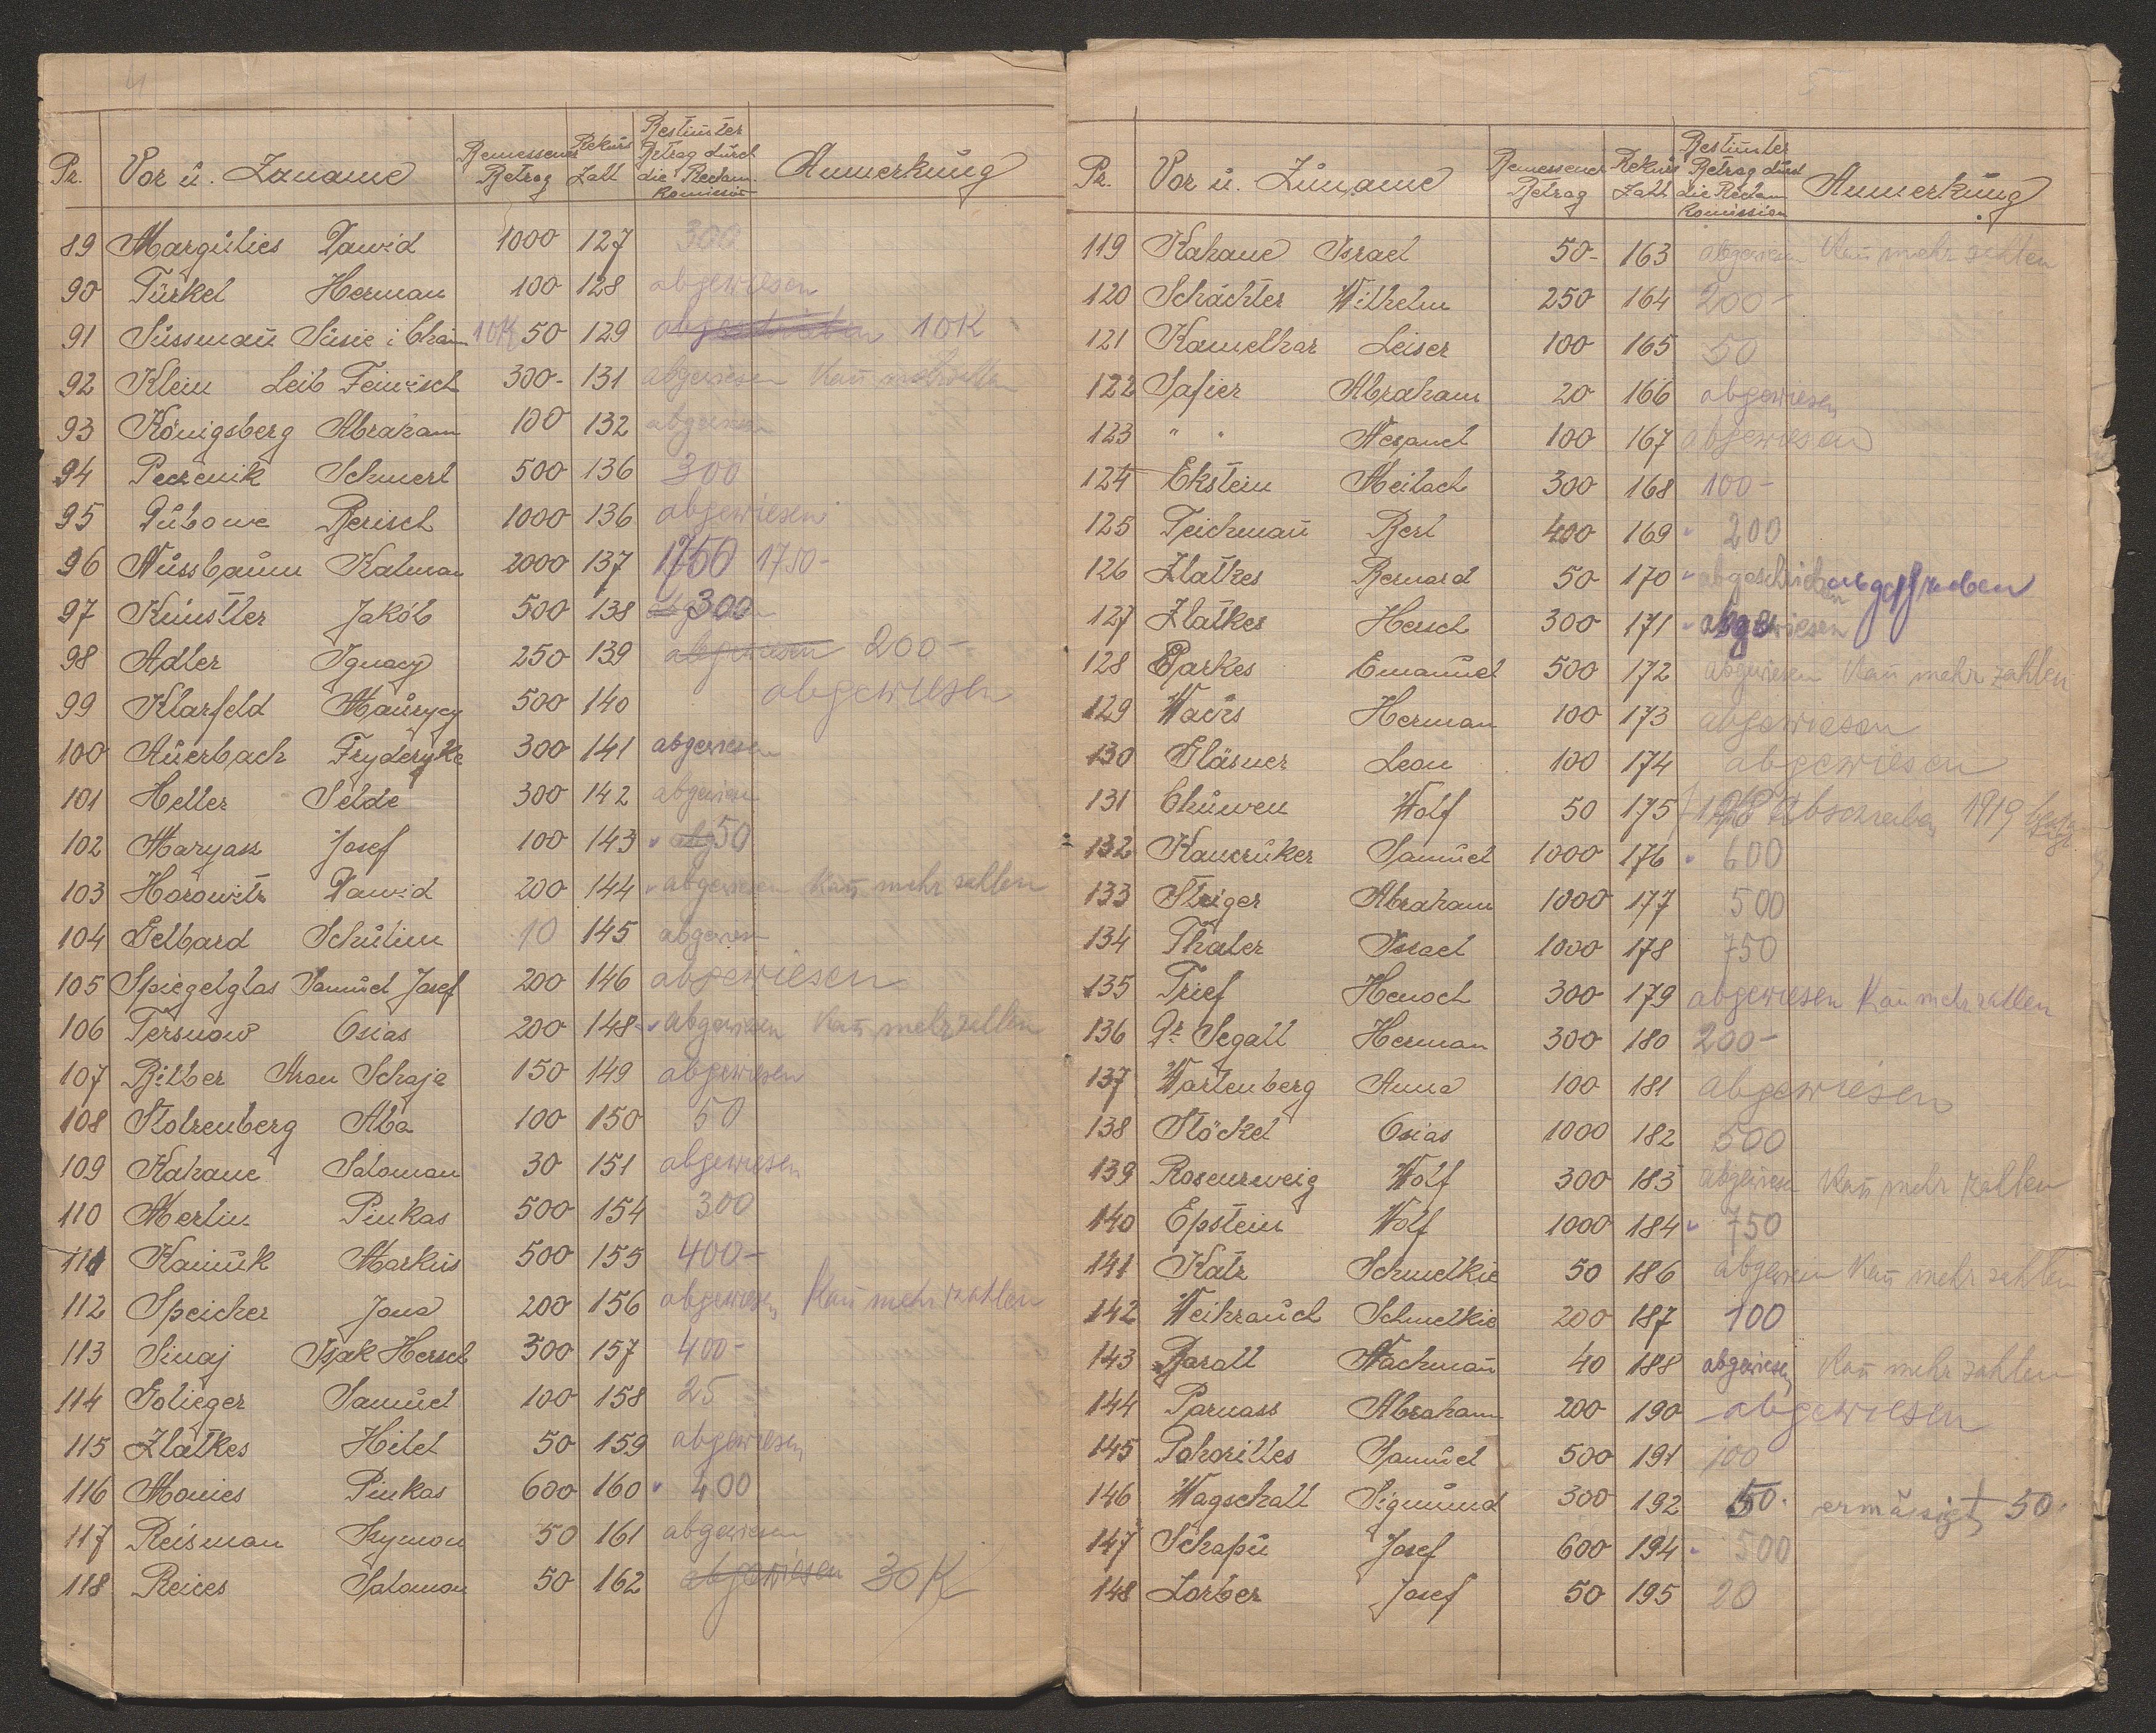 4
Pr. Vor u. Zuname Bemessener Betrag Rekurs Zall Bestimter Betrag durch die Reclam. Komission Anmerkung
89 Margulies Dawid 1000 127 300
90 Türkel Herman 100 128 abgewiesen
91 Süssman Süsie i Chaim 10K 50 129 10K
92 Klein Leib Feiwisch 300- 131 abgewiesen Kan
93 Königsberg Abraham 100 132 abgewiesen
94 Peczenik Schmerl 500 136 300
95 Dubowe Berisch 1000 136 abgewiesen
96 Nussbaum Kalman 2000 137 1750 1750-
97 Künstler Jakób 500 138 300
98 Adler Ignacy 250 139 abgewiesen 200-
99 Klarfeld Maurycy 500 140 abgewiesen
100 Auerbach Fryderyka 300 141 abgewiesen
101 Heller Selde 300 142 abgewiesen
102 Maryasz Josef 100 143 abg 50
103 Horowitz Dawid 200 144 abgewiesen Kan mehr zahlen
104 Gelbard Schulim 10 145 abgewiesen
105 Spiegelglas Samuel Josef 200 146 abgewiesen
106 Tersnow Osias 200 148 abgewiesen Kan mehr zallen
107 Bilber Aron Schaje 150 149 abgewiesen
108 Stolzenberg Aba 100 150 50
109 Kahane Salomon 30 151 abgewiesen
110 Merlin Pinkas 500 154 300
111 Kaniuk Markus 500 155 400-
112 Speicher Jona 200 156 abgewiesen Kan mehr zahlen
113 Sinaj Isak Hersch 500 157 400-
114 Goliger Samuel 100 158 25
115 Zlatkes Hilel 50 159 abgewiesen
116 Monies Pinkas 600 160 400
117 Reisman Szymon 50 161 abgewiesen
118 Reices Salomon 50 162 abgewiesen 30K
5
Pr. Vor u. Zuname Bemessener Betrag Rekurs Zall Bestimter Betrag durch die Reclam Komission Anmerkung
119 Kahane Israel 50- 163 abgewiesen Kan mehr zahlen
120 Schächter Wilhelm 250 164 200-
121 Kamelhar Leiser 100 165 50
122 Safier Abraham 20 166 abgewiesen
123 " " 100 167 abgewiesen
124 Ekstein Meilach 300 168 100-
125 Teichman Berl 400 169 200
126 Zlatkes Bernard 50 170 abgeschrieben
127 Zlatkes Hersch 300 171 abgewiesen
128 Parkes Emanuel 500 172 abgewiesen Kan mehr zahlen
129 Wachs Herman 100 173 abgewiesen
130 Gläsner Leon 100 174 abgewiesen
131 Chuwen Wolf 50 175 1919
132 Kanczuker Samuel 1000 176 600
133 Steiger Abraham 1000 177 500
134 Thaler Israel 1000 178 750
135 Trief Henoch 300 179 abgewiesen Kan mehr zallen
136 Dr. Segall Herman 300 180 200-
137 Wartenberg Anna 100 181 abgewiesen
138 Stöckel Osias 1000 182 500
139 Rosenzweig Wolf 300 183 abgewiesen Kan mehr zallen
140 Epstein Wolf 1000 184 750
141 Katz Schmelkie 50 186 abgewiesen Kan mehr zahlen
142 Weihrauch Schmelkie 200 187 100
143 Barall Nachman 40 188 abgewiesen Kan mehr zahlen
144 Parnass Abraham 200 190 abgewiesen
145 Pohorilles Samuel 500 191 100
146 Wagschall Sigmund 300 192 50. ermässigt 50
147 Schapu Josef 600 194 500
148 Lorber Josef 50 195 20